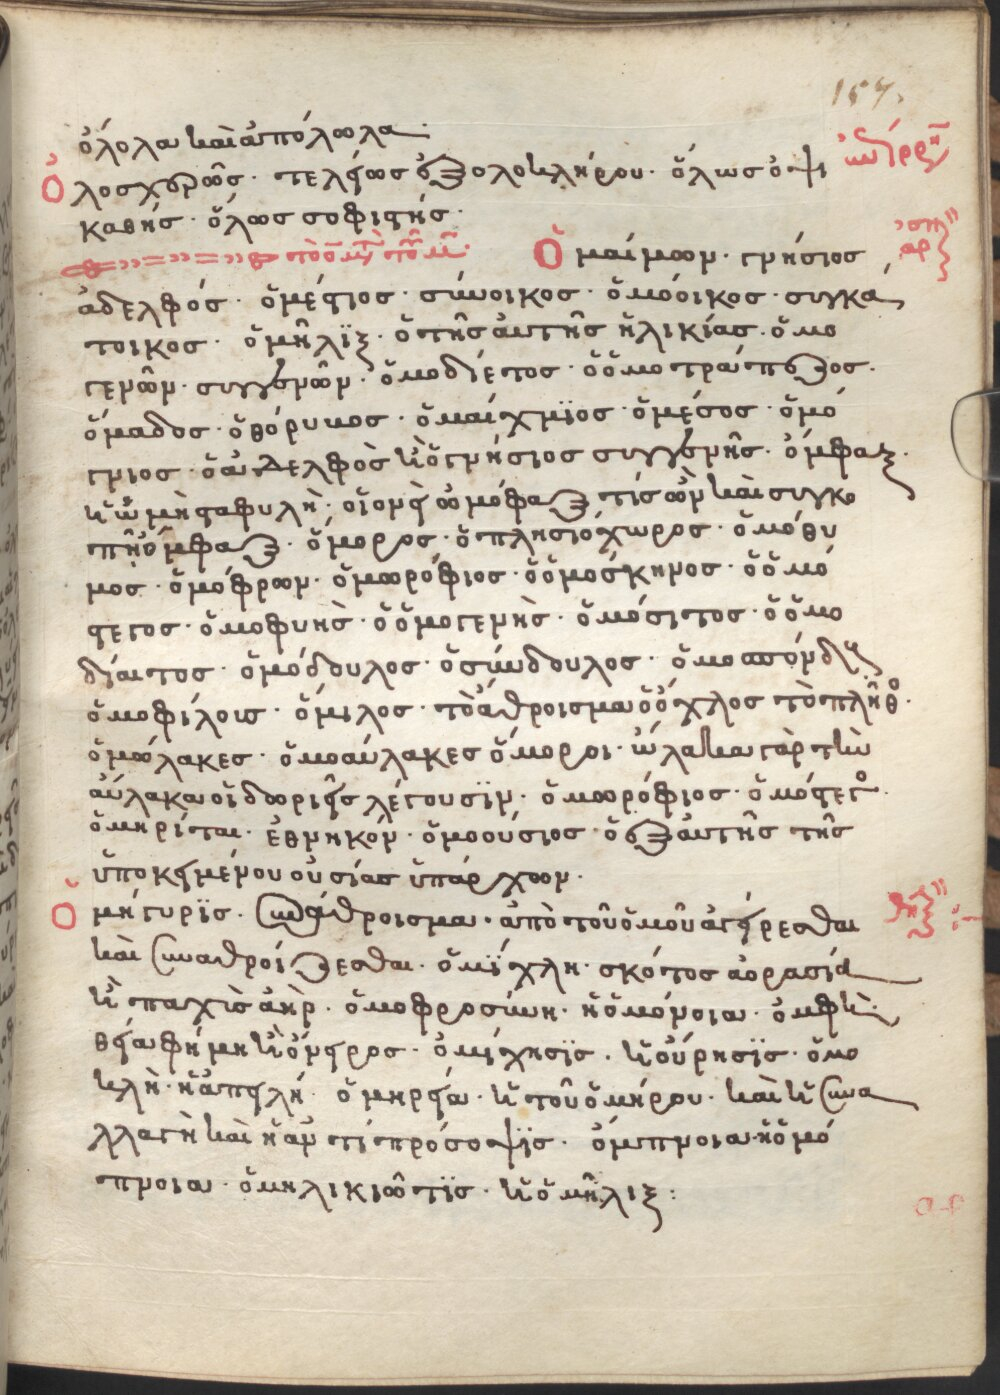 157.
ὄλολα καὶ ἀπόλωλα·
Ὁλοσχερῶς· τελείως ἐξ ολοκλήρου· ὅλως ὀψι
καθής· ὅλως σοφιστής·
Ὁμαίμων· γνήσιος
ἀδελφός· ὁμέστιος· σύνοικος· ὁμόοικος· συγκά
τοικος· ὁμῆλϊξ· ὁ τῆς ἀυτῆς ἡλικίας· ὁμο
γενῶν· συγγενῶν· ὁμοδίετος· ὁ ὁμοτράπεζος·
ὅμαδος· ὁ θόρυβος· ὁμαίχμϊος· ὁ μέσος· ὁμό
γνιος· ὁ ἀδελφὸς κ ὁ γνήσιος συγγενῆς· ὄμφαξ·
ἡ ὠμὴ σταφυλὴ· οἱονεὶ ὠμόφαξ τίς ὢν καὶ συγκο
πῆ ὄμφαξ· ὅμορος· ὁ πλησιόχωρος· ὁμόθυ
μος· ὁμόφρων· ὁμωρόφιος· ὁ ὁμόσκηνος· ὁ ὁμό
στεγος· ὁμοφυὴς· ὁ ὁμογενὴς· ὁμόσιτος· ὁ ὁμο
δίαιτος· ὁμόδουλος· ὁ σύνδουλος· ὁμοσπόνδοις
ὁμοφίλοις· ὅμιλος· τὸ ἄθροισμα ὁ ὄχλος τὸ πλῆθος·
ὁμώλακες· ὁμοαύλακες ὅμοροι· ὤλακα γὰρ τὴν
αὔλακα οἱ δωριεῖς λέγουσϊν· ὁμωρόφιος· ὁμόστεγος·
ὁμηρίσται· ἐθνηκὸν· ὁμοούσιος· ὁ ἐξ ἀυτῆς τῆς
ὑποκειμένου ουσίας ὑπάρχων·
Ὁμήγυρϊς· συνάθροισμα· ἀπὸ τοῦ ὁμοῦ ἀγείρεσθαι
καὶ συναθροίζεσθαι· ὁμΐχλη· σκότος ἀορασία
κ παχὺς ἀὴρ· ὁμοφροσύνη· ἡ ὁμόνοια· ὀμφὴ·
θεία φήμη κ ὄνειρος· ὀμίχησϊς· ἡ οὔρησϊς· ὁμο
κλὴ· ἡ ἀπειλή· ὁμηρεία· ἡ τοῦ ὁμήρου· καὶ ἡ συνα
λλαγὴ καὶ ἡ ἀντιπρόσοψϊς· ὁμπνοια· ἡ ὁμό
πνοια· ὁμηλικιῶτϊς· ἡ ὁμῆλιξ: